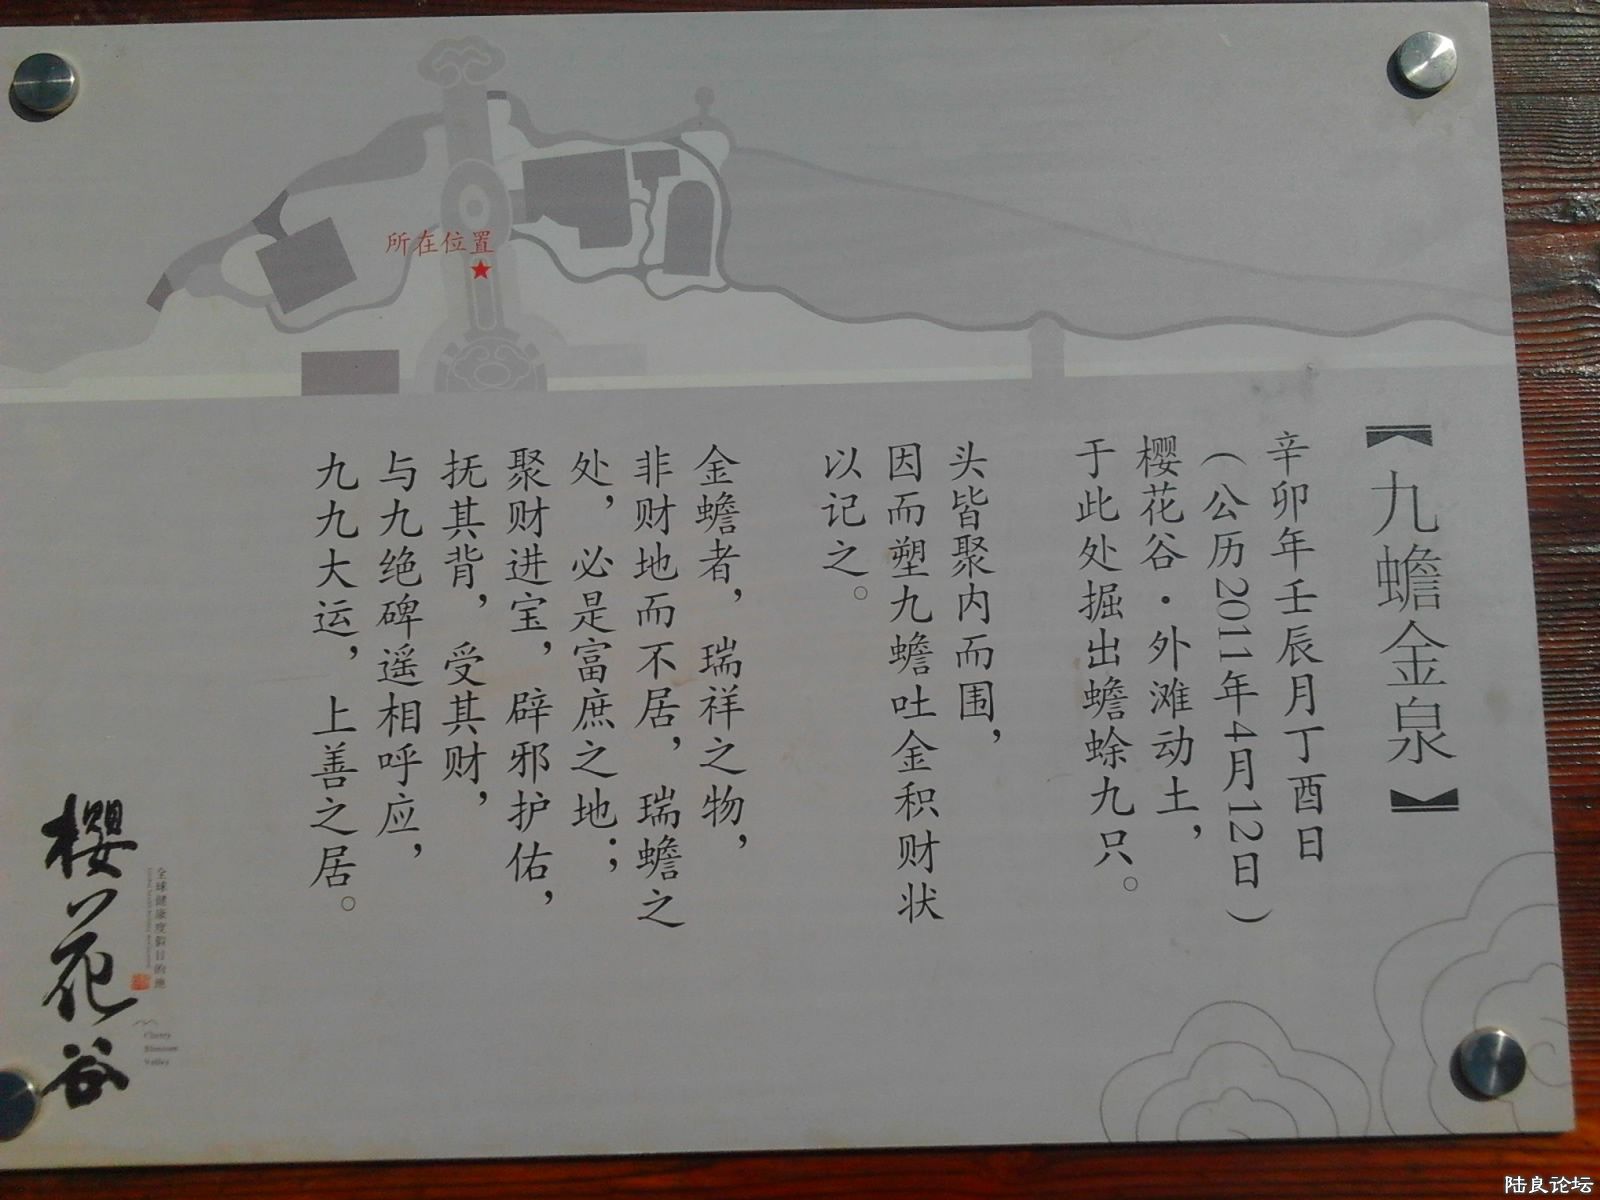 【九蟾金泉】
辛卯年壬辰月丁酉日
（公历2011年4月12日）
樱花谷·外滩动土，
于此处掘出蟾蜍九只。
头皆聚内而围，
因而塑九蟾吐金积财状
以记之。
金蟾者，瑞祥之物，
非财地而不居，瑞蟾之
处，必是富庶之地；
聚财进宝，辟邪护佑，
抚其背，受其财，
与九绝碑遥相呼应，
九九大运，上善之居。
所在位置
樱花谷
全球健康度假目的地
Cherry
Blossom
Valley
陆良论坛